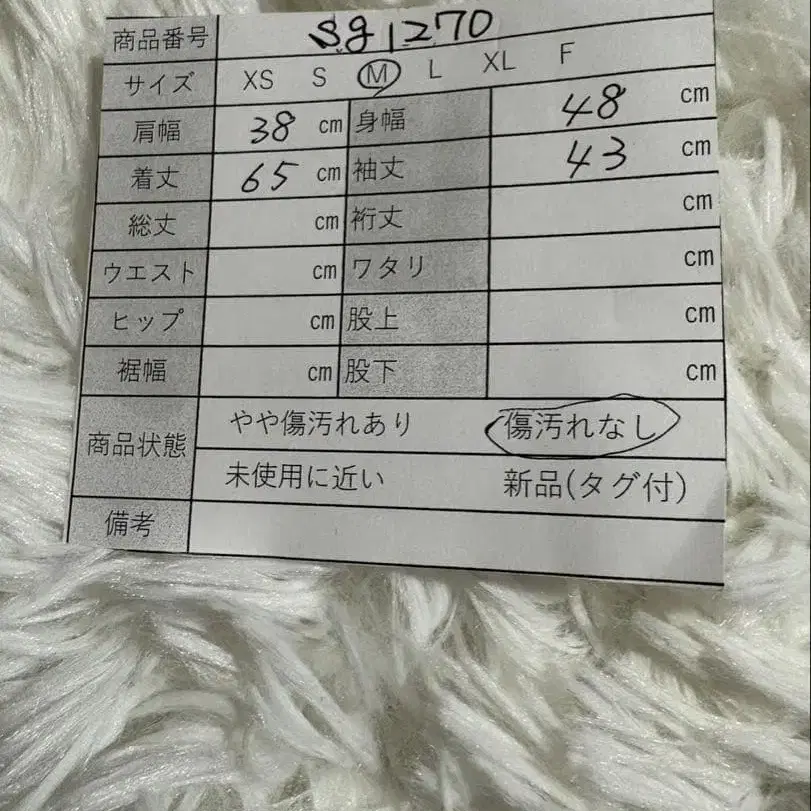 商品番号 sg1270
サイズ XS S M L XL F
肩幅 38 cm 身幅 48 cm
着丈 65 cm 袖丈 43 cm
総丈 cm 裄丈 cm
ウエスト cm ワタリ cm
ヒップ cm 股上 cm
裾幅 cm 股下 cm
商品状態 やや傷汚れあり 傷汚れなし
未使用に近い 新品(タグ付)
備考